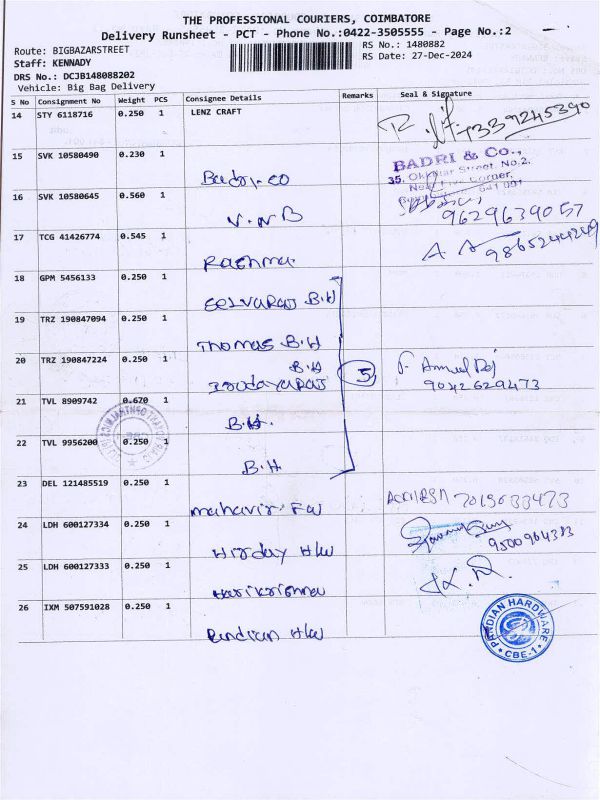 THE PROFESSIONAL COURIERS, COIMBATORE
Delivery Runsheet - PCT - Phone No.:0422-3505555 - Page No.:2
Route: BIGBAZARSTREET
RS No.: 1480882
Staff: KENNADY
RS Date: 27-Dec-2024
DRS No.: DCJB148088202
Vehicle: Big Bag Delivery
S No Consignment No Weight PCS Consignee Details Remarks Seal & Signature
14 STY 6118716 0.250 1 LENZ CRAFT
15 SVK 10580490 0.230 1
Badri-co
BADRI & Co.,
35, Street, No.2,
Corner,
641 001
16 SVK 10580645 0.560 1
V.N B
9629639057
17 TCG 41426774 0.545 1
Rashmi
9865244249
18 GPM 5456133 0.250 1
Selvaraj B.H
19 TRZ 190847094 0.250 1
Thomas B.H
20 TRZ 190847224 0.250 1
B.H
Irudayaraj
5
9042629473
21 TVL 8909742 0.670 1
B.H.
22 TVL 9956200 0.250 1
B.H
23 DEL 121485519 0.250 1
mahavir
7019633473
24 LDH 600127334 0.250 1
Hirday H/W
9500964383
25 LDH 600127333 0.250 1
Harikrishna
26 IXM 507591028 0.250 1
Pandian H/W
PANDIAN HARDWARE
CBE-1